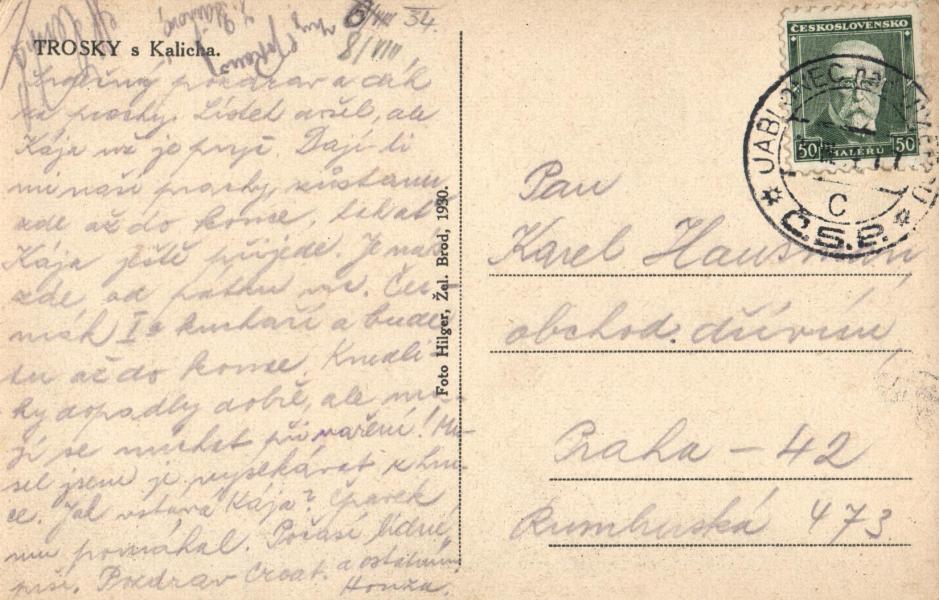 6/VIII 34.
8/VIII
TROSKY s Kalicha.
Srdečný pozdrav a dík
za prachy. Lístek došel, ale
Kája už je pryč. Dají-li
mi naši prachy zůstanu
zde až do konce,
Kája ještě přijede. Je nás
zde od pátku víc.
I a kuchaří a bude
tu až do konce. Knedlí-
ky dopadly dobře, ale
se míchat při vaření! Mu-
sel jsem je vysekávat z hrn-
ce. Jak vstává Kája? Čpavek
mu pomáhal. Počasí bídné,
prší. Pozdrav a ostatním
Honza.
Foto Hilger, Žel. Brod, 1930.
ČESKOSLOVENSKO
50 HALÉŘŮ 50
JABLONEC
C
Č.S.P.
Pan
Karel Hausmann
obchod. dřívím
Praha – 42
Rumburská 473